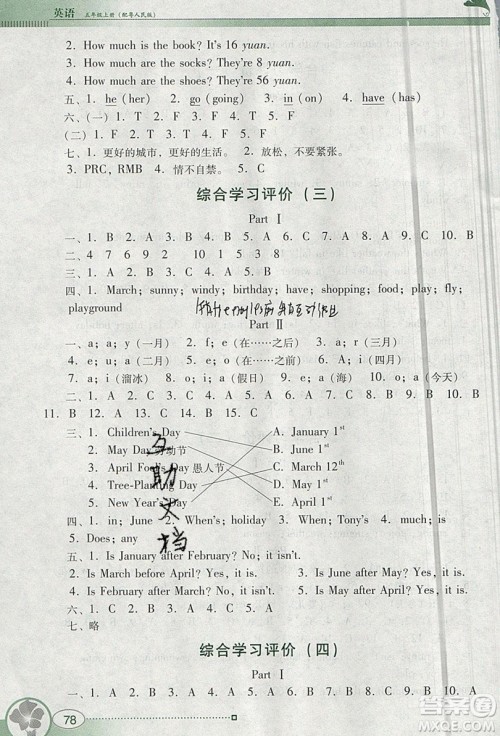 英语 五年级上册（配粤人民版）
2. How much is the book? It's 16 yuan.
3. How much are the socks? They're 8 yuan.
4. How much are the shoes? They're 56 yuan.
五、1. he (her) 2. go (going) 3. in (on) 4. have (has)
六、(一) 1. F 2. T 3. T 4. F 5. T
(二) 1. F 2. F 3. T 4. T 5. T
七、1. 更好的城市，更好的生活。 2. 放松，不要紧张。
3. PRC, RMB 4. 情不自禁。 5. C
综合学习评价（三）
Part Ⅰ
一、1. B 2. A 3. B 4. B 5. C 6. A 7. A 8. A 9. C 10. B
二、4 7 6 9 2 10 5 1 8 3
三、1. B 2. A 3. A 4. A 5. A 6. B 7. B 8. A 9. A 10. B
四、1. March; sunny; windy; birthday; have; shopping; food; play; fly;
playground
Part Ⅱ
一、1. a; a (一月) 2. e; f (在……之后) 3. a; r (三月)
4. e; u (二月) 5. e; f (在……之前) 6. A; i (四月)
7. a; i (溜冰) 8. o; i (假日) 9. e; e (海) 10. o; a (今天)
11. B 12. A 13. C 14. B 15. C
三、1. Children's Day A. January 1st
2. May Day 劳动节 B. June 1st
3. April Fool's Day 愚人节 C. March 12th
4. Tree-Planting Day D. May 1st
5. New Year's Day E. April 1st
互助文档
四、1. in; June 2. When's; holiday 3. When; Tony's 4. much; is
5. Does; any
五、1. Is January after February? No, it isn't.
2. Is March before April? Yes, it is. 3. Is June after April? Yes, it is.
4. Is February after March? No, it isn't. 5. Is May after April? Yes, it is.
六、1. C 2. B 3. A 4. B 5. C
七、略
综合学习评价（四）
Part Ⅰ
78
答案圈